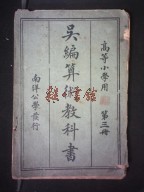 高等小學用
第二冊
吳編算術教科書
南洋公學發行